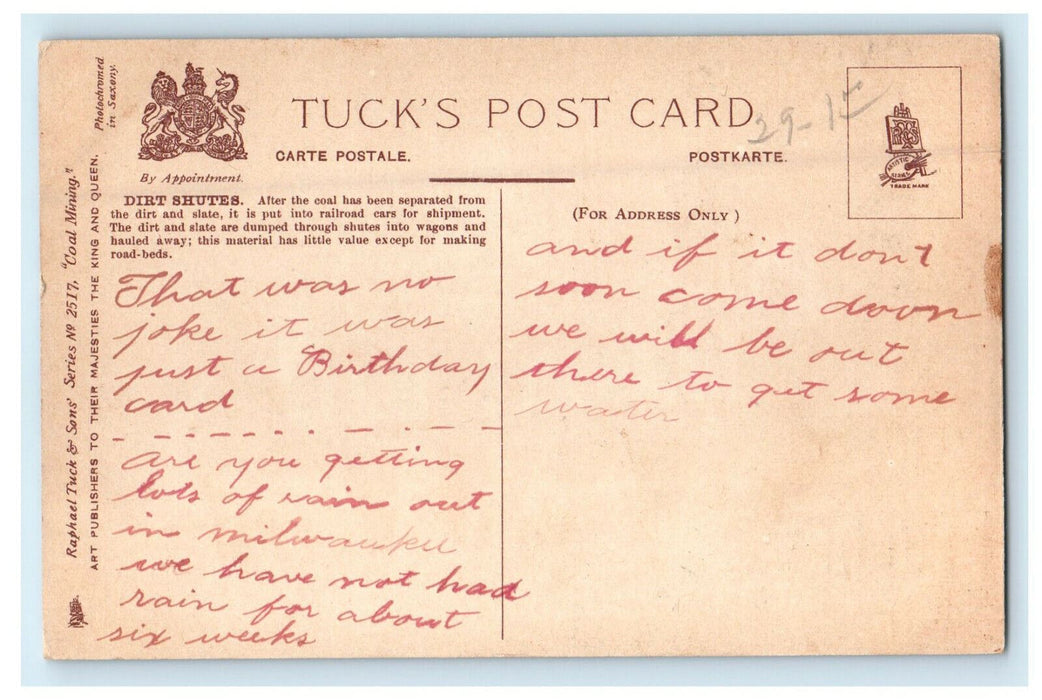 Photochromed
in Saxony.
By Appointment.
TUCK'S POST CARD
29-1
CARTE POSTALE.
POSTKARTE.
ARTISTIC
SERIES
TRADE MARK
Raphael Tuck & Sons' Series No 2517, "Coal Mining."
ART PUBLISHERS TO THEIR MAJESTIES THE KING AND QUEEN.
DIRT SHUTES. After the coal has been separated from
the dirt and slate, it is put into railroad cars for shipment.
The dirt and slate are dumped through shutes into wagons and
hauled away; this material has little value except for making
road-beds.
That was no
joke it was
just a Birthday
card
are you getting
lots of rain out
in milwaukee
we have not had
rain for about
six weeks
(FOR ADDRESS ONLY)
and if it don't
soon come down
we will be out
there to get some
water